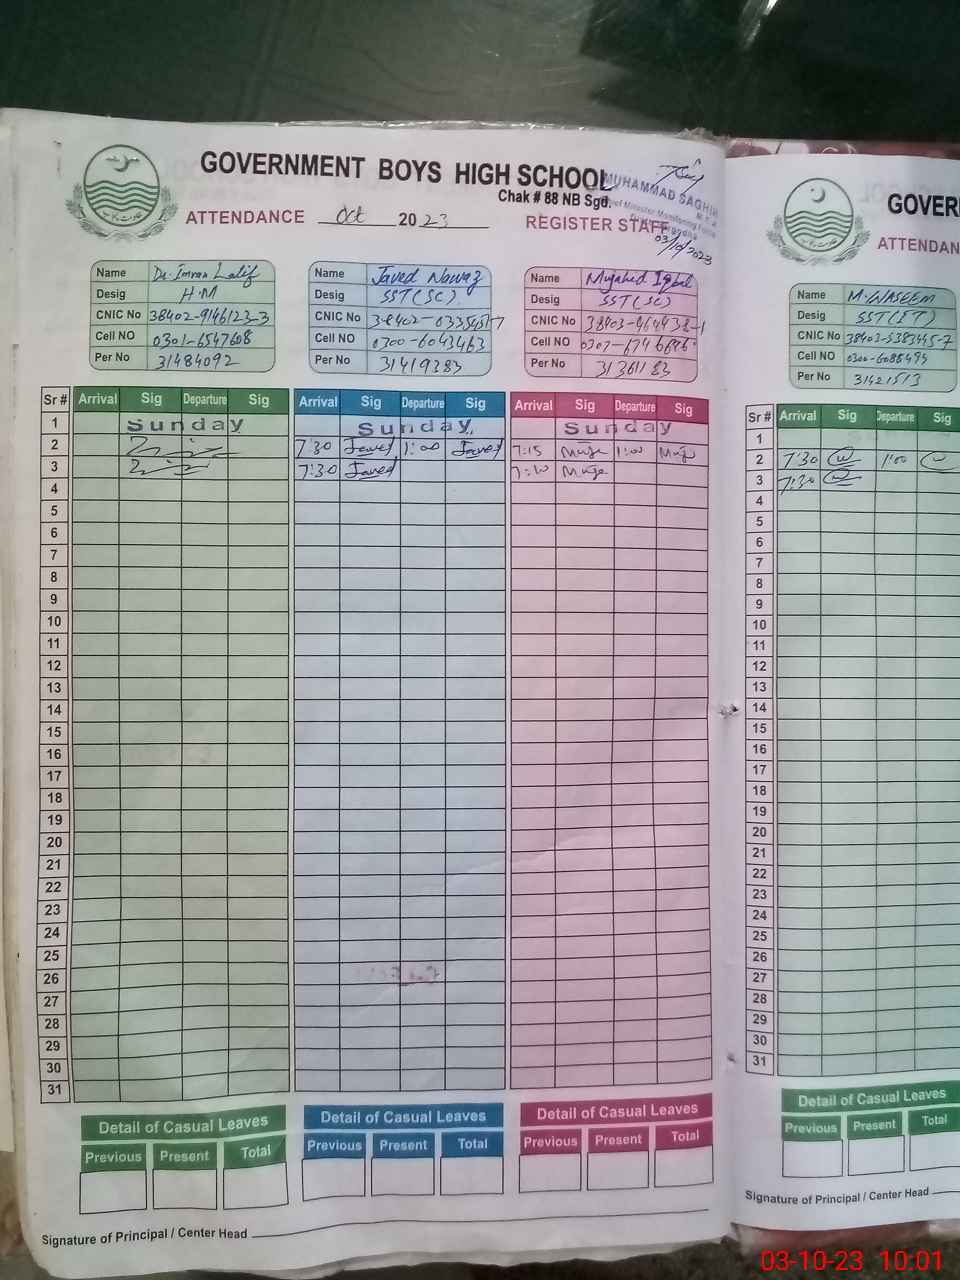 GOVERNMENT BOYS HIGH SCHOOL
Chak # 88 NB Sgd.
MUHAMMAD SAGHIR
03/10/2023
ATTENDANCE Oct 2023 REGISTER STAFF
Name Dr. Imran Latif
Desig H.M
CNIC No 38402-9146123-3
Cell NO 0301-6547608
Per No 31484092
Name Javed Nawaz
Desig SST(SC)
CNIC No
Cell NO 0300-6043463
Per No 31419383
Name Mujahed Iqbal
Desig SST(SC)
CNIC No
Cell NO
Per No 31361183
Sr # Arrival Sig Departure Sig Arrival Sig Departure Sig Arrival Sig Departure Sig
1 Sunday Sunday Sunday
2 7:30 Javed 1:00 Javed 7:15 Muja 1:00 Muja
3 7:30 Javed 7:10 Muja
4
5
6
7
8
9
10
11
12
13
14
15
16
17
18
19
20
21
22
23
24
25
26
27
28
29
30
31
Detail of Casual Leaves Detail of Casual Leaves Detail of Casual Leaves
Previous Present Total Previous Present Total Previous Present Total
Signature of Principal / Center Head
GOVER
ATTENDAN
Name M. WASEEM
Desig SST(ET)
CNIC No 38403-5383445-7
Cell NO 0300-6088495
Per No 31421513
Sr # Arrival Sig Departure Sig
1
2 7:30 1:00
3 7:30
4
5
6
7
8
9
10
11
12
13
14
15
16
17
18
19
20
21
22
23
24
25
26
27
28
29
30
31
Detail of Casual
Previous Present
Signature of Principal / Center Head
03-10-23 10:01